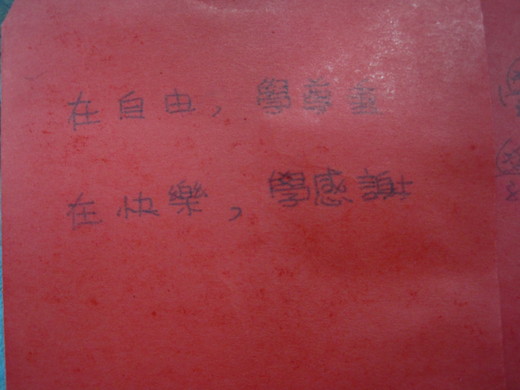 在自由，學尊重
在快樂，學感